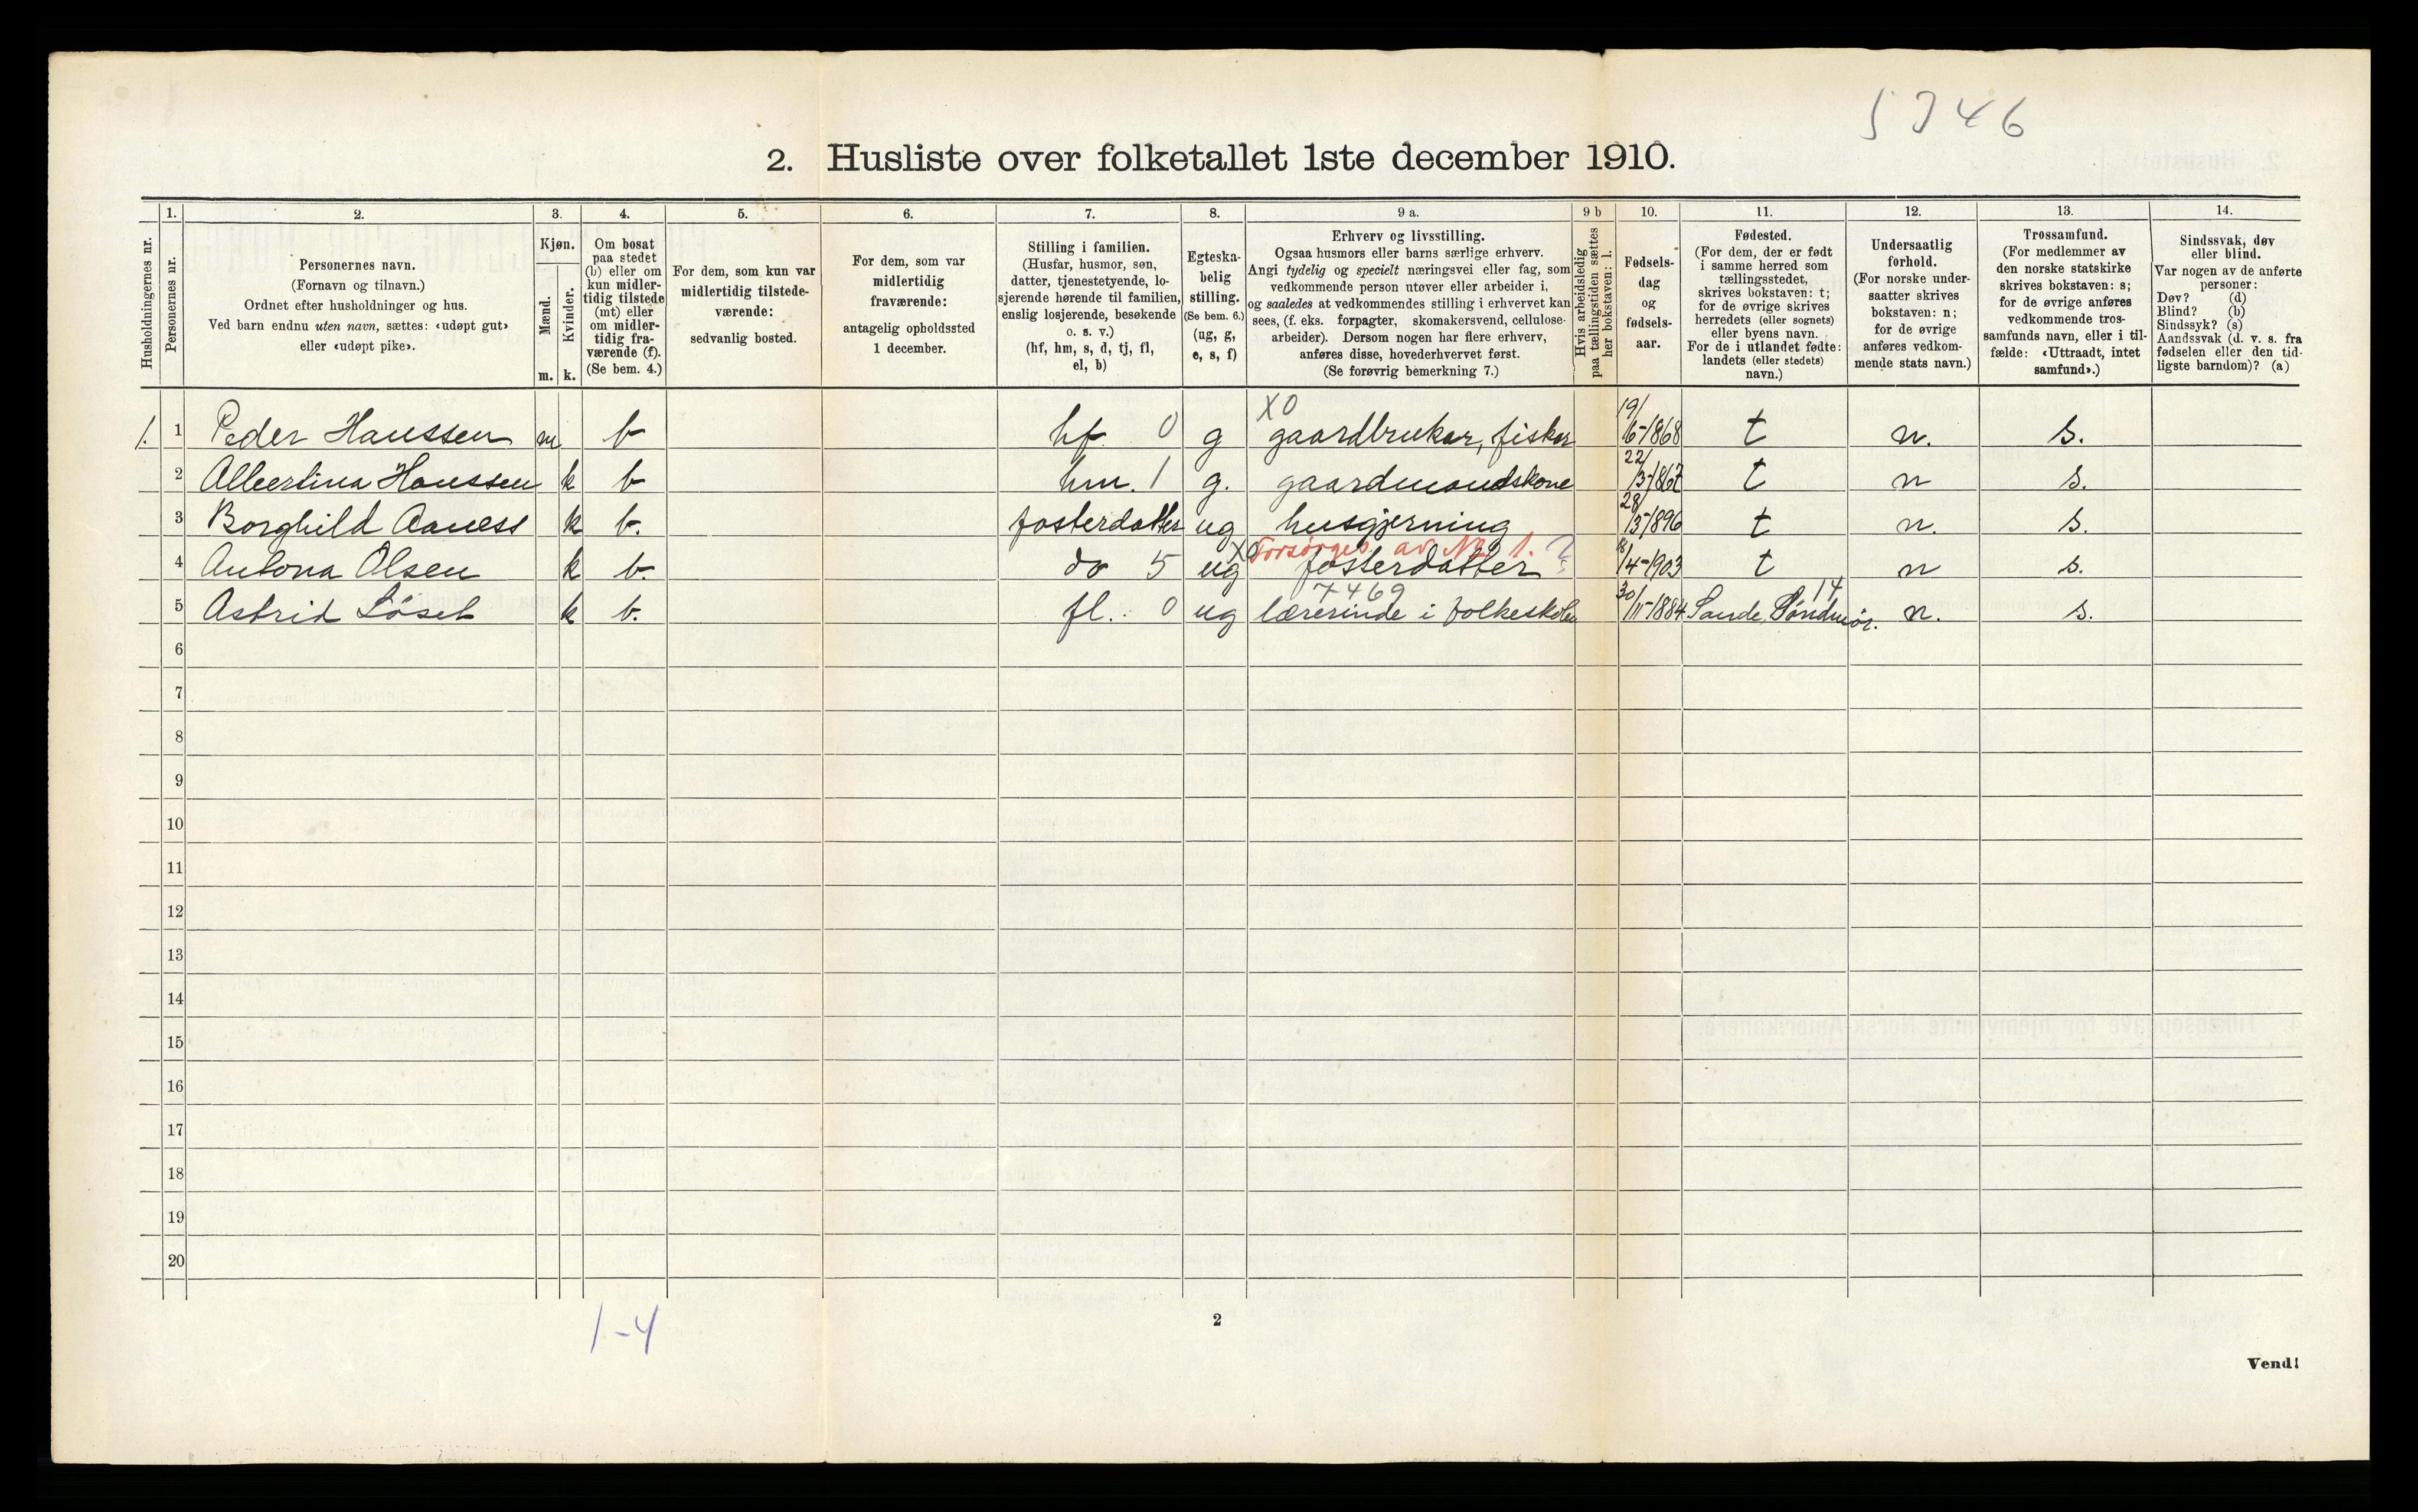 5346
2. Husliste over folketallet 1ste december 1910.
Husholdningernes nr.
1.
Personernes nr.
2.
Personernes navn.
(Fornavn og tilnavn.)
Ordnet efter husholdninger og hus.
Ved barn endnu uten navn, sættes: «udøpt gut»
eller «udøpt pike».
3.
Kjøn.
Mænd.
Kvinder.
m. k.
4.
Om bosat
paa stedet
(b) eller om
kun midler-
tidig tilstede
(mt) eller
om midler-
tidig fra-
værende (f).
(Se bem. 4.)
5.
For dem, som kun var
midlertidig tilstede-
værende:
sedvanlig bosted.
6.
For dem, som var
midlertidig
fraværende:
antagelig opholdssted
1 december.
7.
Stilling i familien.
(Husfar, husmor, søn,
datter, tjenestetyende, lo-
sjerende hørende til familien,
enslig losjerende, besøkende
o. s. v.)
(hf, hm, s, d, tj, fl,
el, b)
8.
Egteska-
belig
stilling.
(Se bem. 6.)
(ug, g,
e, s, f)
9 a.
Erhverv og livsstilling.
Ogsaa husmors eller barns særlige erhverv.
Angi tydelig og specielt næringsvei eller fag, som
vedkommende person utøver eller arbeider i,
og saaledes at vedkommendes stilling i erhvervet kan
sees, (f. eks. forpagter, skomakersvend, cellulose-
arbeider). Dersom nogen har flere erhverv,
anføres disse, hovederhvervet først.
(Se forøvrig bemerkning 7.)
9 b
Hvis arbeidsledig
paa tællingstiden sættes
her bokstaven: l.
10.
Fødsels-
dag
og
fødsels-
aar.
11.
Fødested.
(For dem, der er født
i samme herred som
tællingsstedet,
skrives bokstaven: t;
for de øvrige skrives
herredets (eller sognets)
eller byens navn.
For de i utlandet fødte:
landets (eller stedets)
navn.)
12.
Undersaatlig
forhold.
(For norske under-
saatter skrives
bokstaven: n;
for de øvrige
anføres vedkom-
mende stats navn.)
13.
Trossamfund.
(For medlemmer av
den norske statskirke
skrives bokstaven: s;
for de øvrige anføres
vedkommende tros-
samfunds navn, eller i til-
fælde: «Uttraadt, intet
samfund».)
14.
Sindssvak, døv
eller blind.
Var nogen av de anførte
personer:
Døv? (d)
Blind? (b)
Sindssyk? (s)
Aandssvak (d. v. s. fra
fødselen eller den tid-
ligste barndom)? (a)
X0
1. 1 Peder Hanssen m b hf 0 g gaardbruker, fisker 19/6-1868 t n. s.
2 Albertina Hanssen k b hm. 1 g. gaardmandskone 22/3-1867 t n s.
3 Borghild Aaness k b. fosterdatter ug husgjerning 28/3-1896 t n. s.
X0 Forsørges av No 1. ?
4 Antona Olsen k b. do 5 ug fosterdatter /4-1903 t n s.
7469 14
5 Astrid Løset k b. fl. 0 ug lærerinde i folkeskolen 30/11-1884 Sande, Søndmør. n. s.
6
7
8
9
10
11
12
13
14
15
16
17
18
19
20
1-4
2
Vend!